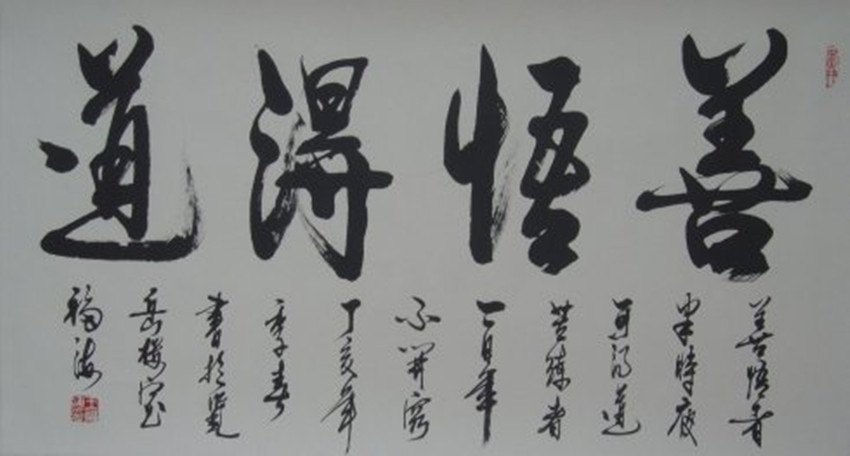 善悟得道
善悟者
半時夜
可得道
苦練者
一百年
不開窍
丁亥年
季春
書於覽
岳樓室
福海